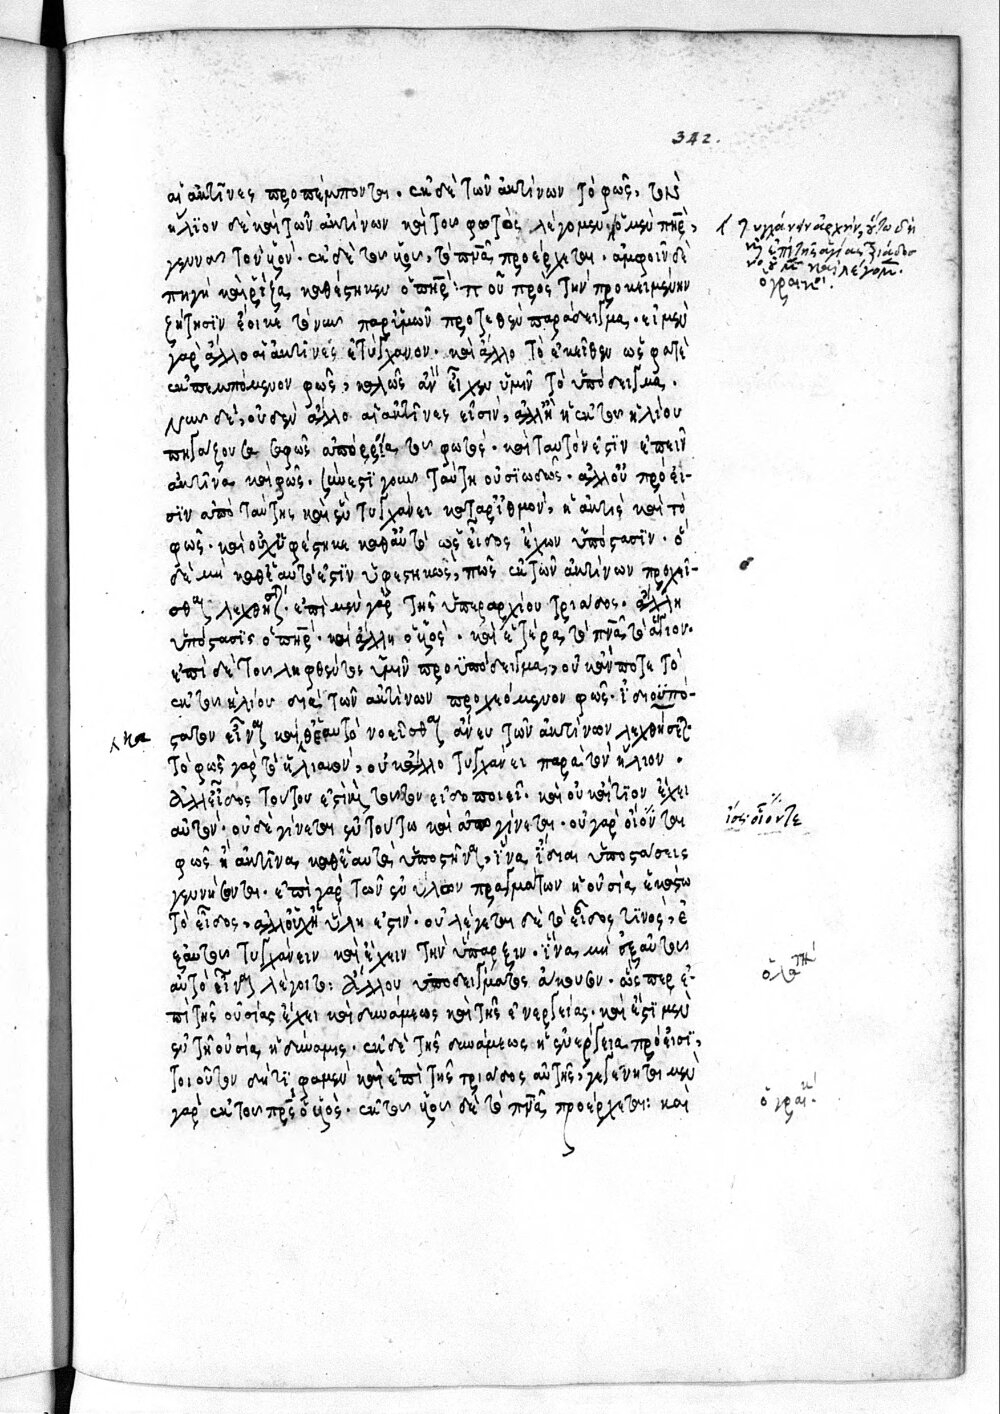 342.
αἱ ἀκτῖνες προπέμπονται. ἐκ δὲ τῶν ἀκτίνων τὸ φῶς, τὸν
ἥλιον δὲ καὶ τῶν ἀκτίνων καὶ τοῦ φωτὸς λέγομεν, ὁ μὲν πηρ,
γεννᾶ τὸν υἱόν. ἐκ δὲ τοῦ υἱοῦ, τὸ πνα προέρχεται. ἀμφοῖν δὲ
πηγὴ καὶ ῥίζα καθέστηκεν ὁ πηρ: π οὐ πρὸς τὴν προκειμένην
ζήτησιν ἔοικε τὸ νῦν παρ' ἡμῶν προτεθὲν παράδειγμα. εἰ μὲν
γὰρ ἄλλο αἱ ἀκτῖνες ἐτύγχανον. καὶ ἄλλο τὸ ἐκεῖθεν ὡς φατὲ
ἐκπεμπόμενον φῶς, καλῶς ἂν εἶχεν ὑμῖν τὸ ὑπόδειγμα.
νῦν δέ, οὐδὲν ἄλλο αἱ ἀκτῖνες εἰσίν, ἀλλ' ἢ ἐκ τοῦ ἡλίου
πηγάζουσα φῶς ἀπόρροια τοῦ φωτός. καὶ ταυτόν ἐστιν εἰπεῖν
ἀκτῖνα καὶ φῶς. σύνεστι γοῦν ταύτῃ οὐσιωδῶς. ἀλλ' οὐ πρόει-
σιν ἀπὸ ταύτης καὶ ἓν τυγχάνει κατ' ἀριθμόν, ἡ ἀκτὶς καὶ τὸ
φῶς. καὶ οὐχ ὑφέστηκε καθ' αὑτὸ ὡς εἶδος ἔχων ὑπόστασιν. ὃ
δὲ μὴ καθ' ἑαυτό ἐστιν ὑφεστηκώς, πῶς ἐκ τῶν ἀκτίνων προχεῖ-
σθαι λεχθήσεται. ἐπὶ μὲν γὰρ τῆς ὑπεραρχίου τριάδος. ἄλλη
ὑπόστασις ὁ πηρ. καὶ ἄλλη ὁ υἱός. καὶ ἑτέρα τὸ πνα τὸ ἅγιον.
ἐπὶ δὲ τοῦ ληφθέντος ὑμῖν προϋποδείγματος, οὐκ ἄν ποτε τὸ
ἐκ τοῦ ἡλίου διὰ τῶν ἀκτίνων προχεόμενον φῶς. ἰδιοϋπό-
στατον εἶναι καὶ καθ' ἑαυτὸ νοεῖσθαι ἄνευ τῶν ἀκτίνων λεχθήσεται
τὸ φῶς γὰρ τὸ ἡλιακόν, οὐκ ἄλλο τυγχάνει παρὰ τὸν ἥλιον.
ἀλλ' εἶδος τούτου ἐστὶ τοῦτον εἰδοποιεῖ. καὶ οὐκ αἴτιον ἔχει
αὐτόν. οὐδὲ γίνεται ἐν τούτῳ καὶ ἀπογίνεται. οὐ γὰρ οἷόν τε
φῶς ἢ ἀκτῖνα καθ' ἑαυτὰ ὑποστῆναι, ἵνα ἴδιαι ὑποστάσεις
γεννηθῶνται. ἐπὶ γὰρ τῶν ἐνύλων πραγμάτων ἡ οὐσία
τὸ εἶδος, ἀλλ' οὐχ ἡ ὕλη ἐστίν. οὐ λέγεται δὲ τὸ εἶδος τινός, ἐ
ξ αὐτοῦ τυγχάνειν καὶ ἔχειν τὴν ὕπαρξιν. ἵνα μὴ ἐξ αὐτοῦ
αὐτὸ εἶναι λέγοιτο: ἄλλου ὑποδείγματος ἄκουσον. ὥσπερ ἐ-
πὶ τῆς οὐσίας ἔχει καὶ δυνάμεως καὶ τῆς ἐνεργείας. καὶ ἔστι μὲν
ἐν τῇ οὐσίᾳ ἡ δύναμις. ἐκ δὲ τῆς δυνάμεως ἡ ἐνέργεια πρόεισι,
τοιοῦτον δή τι φαμὲν καὶ ἐπὶ τῆς τριάδος αὐτῆς, γεγέννηται μὲν
γὰρ ἐκ τοῦ πρς ὁ υἱός. ἐκ τοῦ υἱοῦ δὲ τὸ πνα προέρχεται: καὶ
ἀρχὴν, οὕτω δὴ
ἐπὶ τῆς ἁγίας τριάδος
καὶ λέγομεν.
ὁ γραικός.
οἷόν τε
ὁ λατῖ
ὁ γραικ.